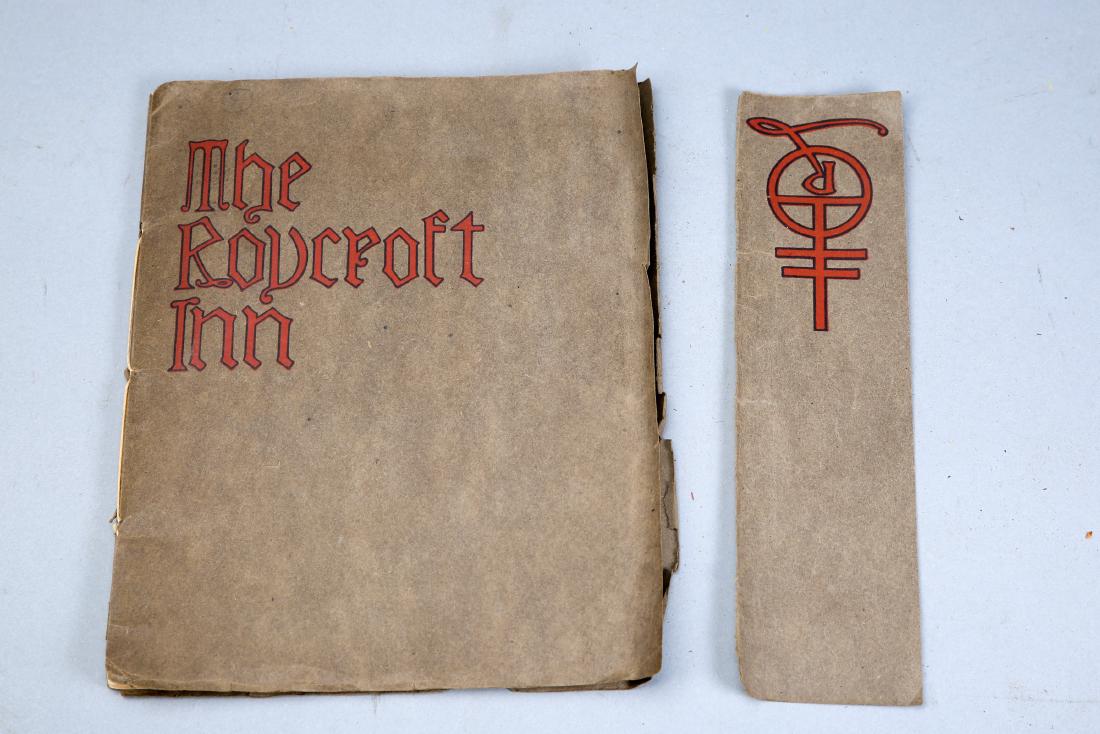 The
Roycroft
Inn
R